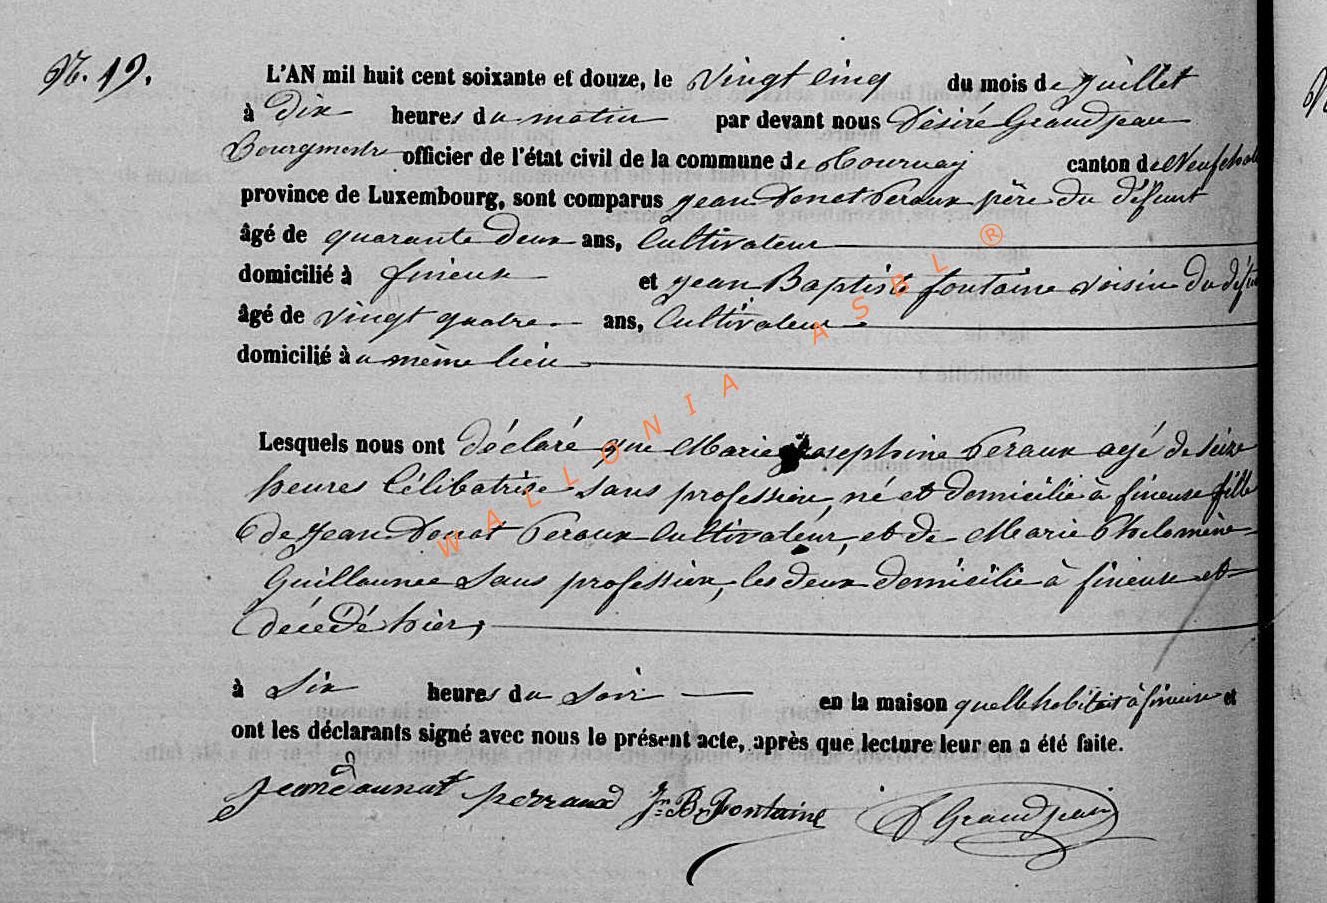 N. 19.
L'AN mil huit cent soixante et douze, le vingt cinq du mois de juillet
à dix heures du matin par devant nous Désiré Grandjean
Bourgmestre officier de l'état civil de la commune de Tournay canton de Neufchat
province de Luxembourg, sont comparus Jean Donet Peraux père du défunt
âgé de quarante deux ans, Cultivateur
domicilié à fineux et Jean Baptiste fontaine voisin du défun
âgé de vingt quatre ans, Cultivateur
domicilié au même lieu
Lesquels nous ont déclaré que Marie Josephine Peraux agé de seize
heures Célibatrise sans profession, né et domicilié à fineuse fille
de Jean Donat Peraux Cultivateur, et de Marie Philomène
Guillaume sans profession, les deux domicilié à fineuse et
décédé hier,
à six heures du soir en la maison quelle habitait à fineuse et
ont les déclarants signé avec nous le présent acte, après que lecture leur en a été faite.
Jean perraux Jn B. Fontaine D Grandjean
WALLONIA ASBL ®